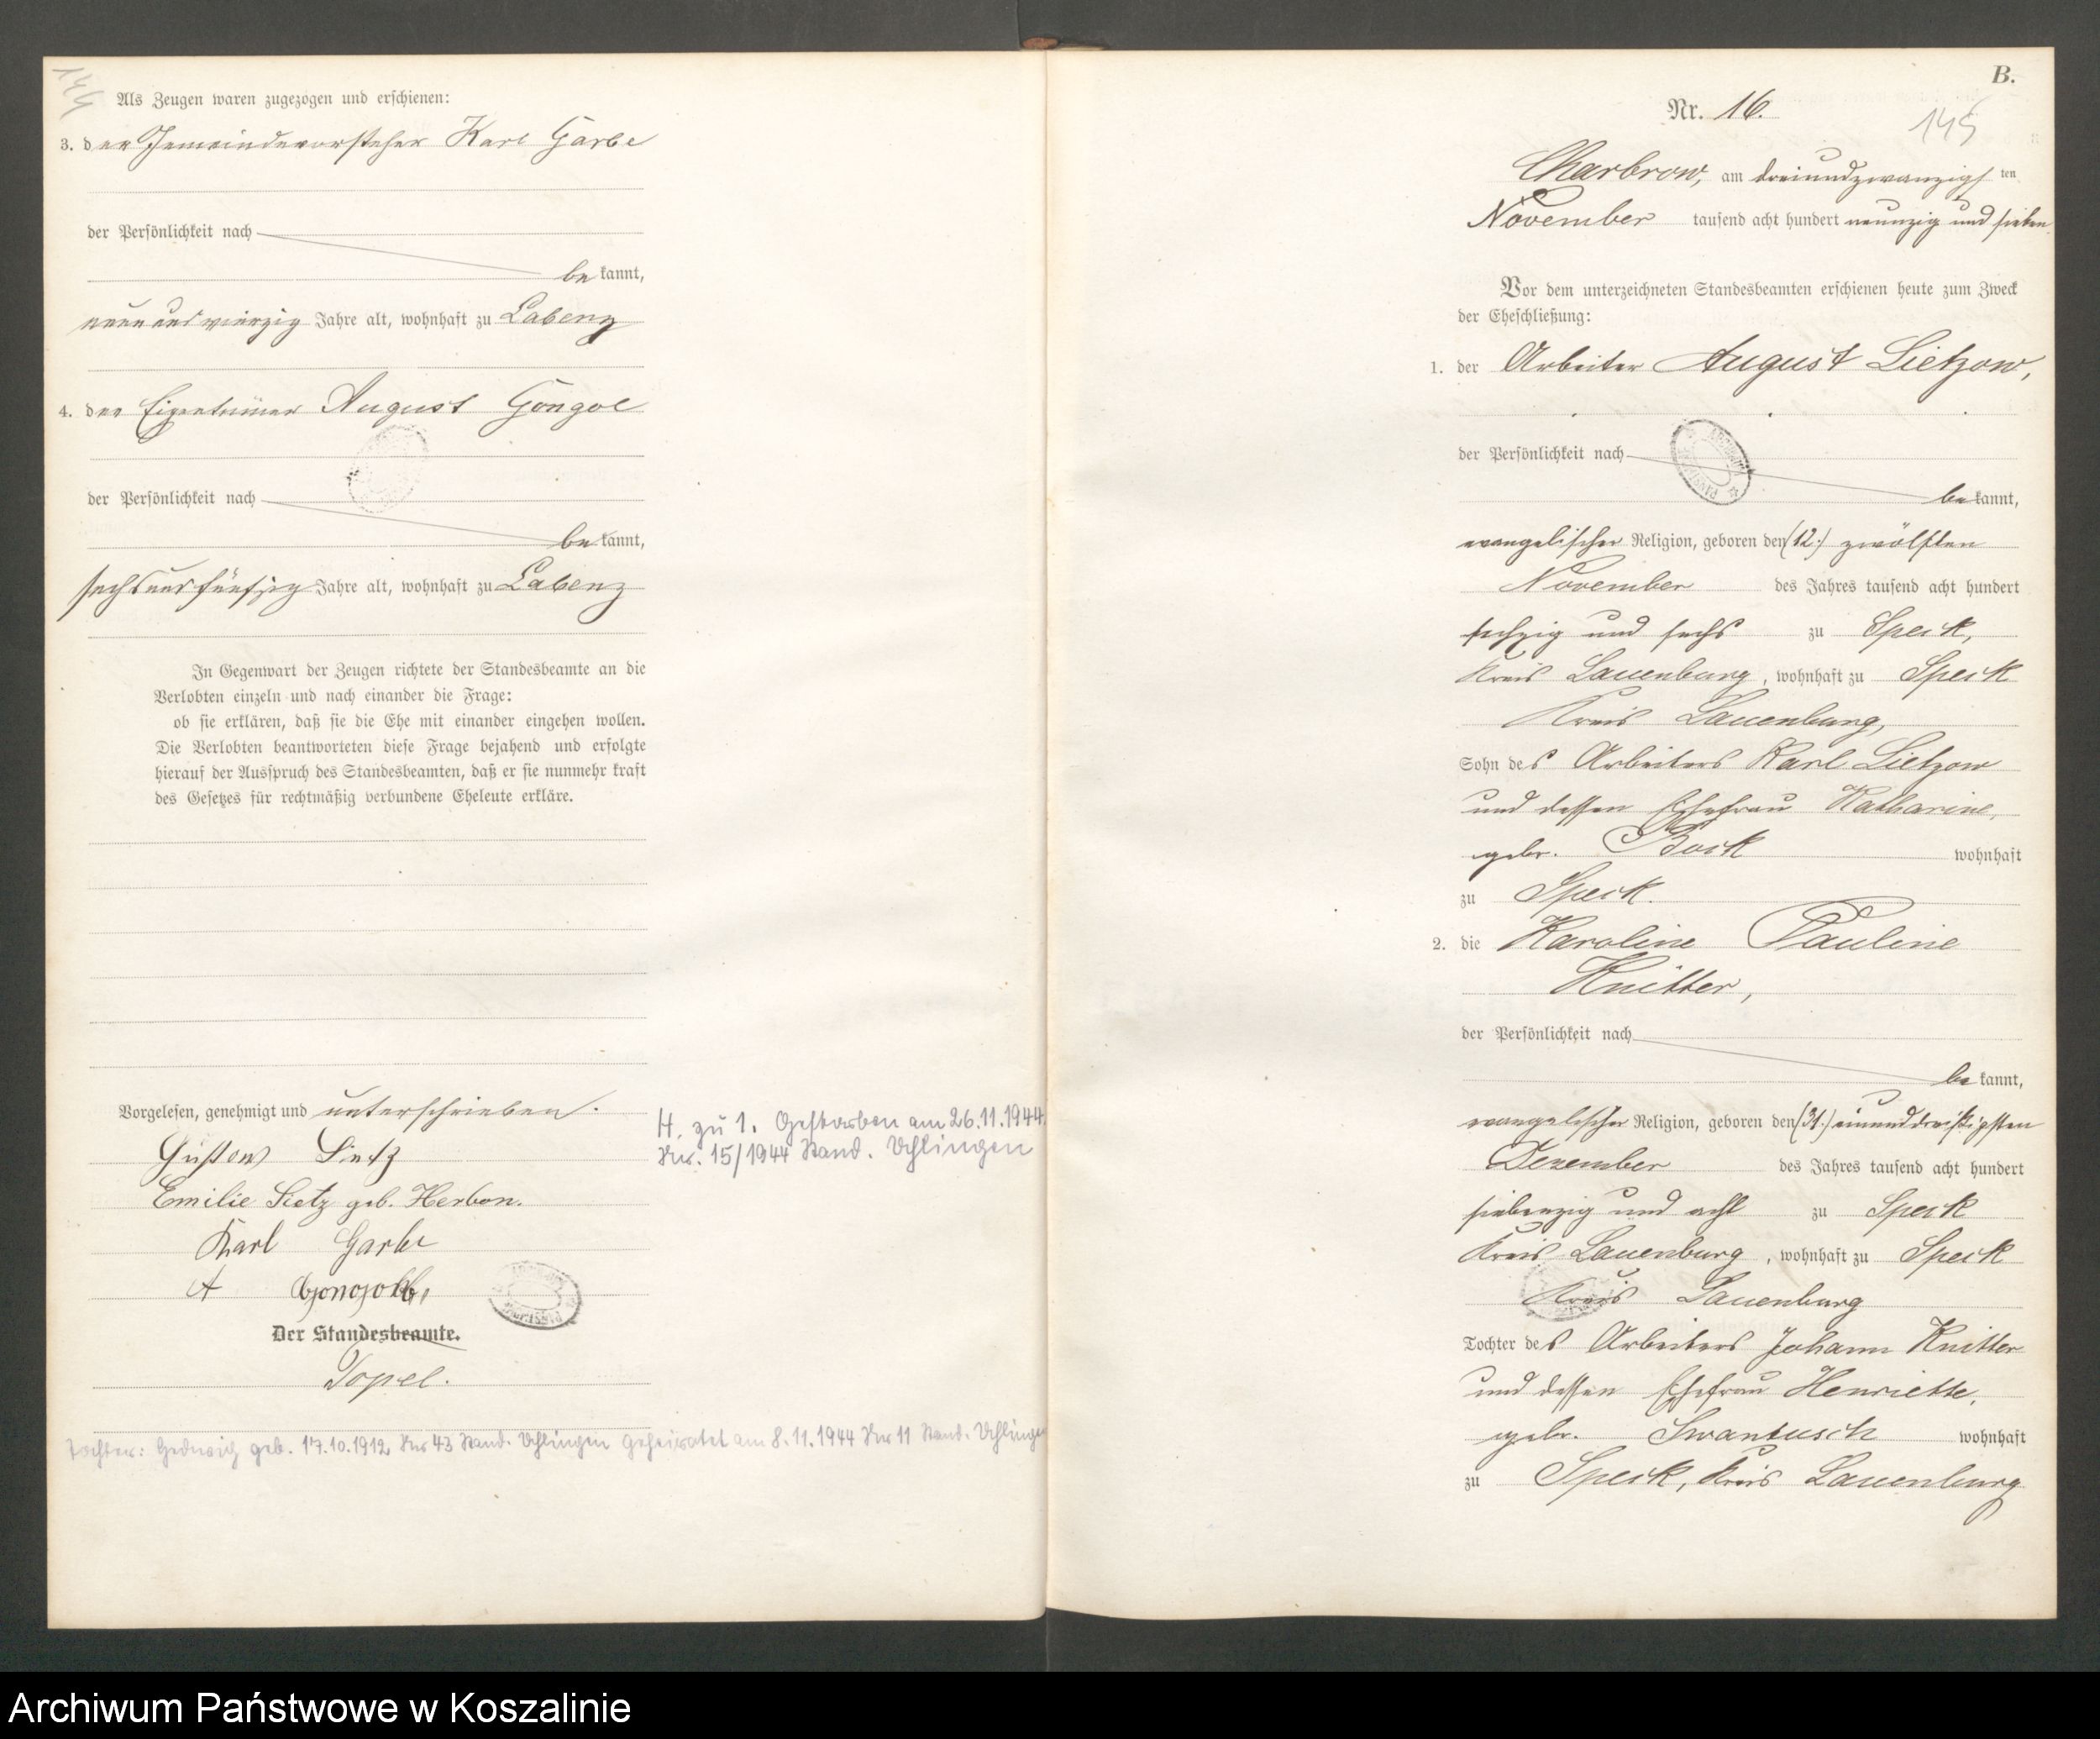 144
Als Zeugen waren zugezogen und erschienen:
3. der Gemeindevorsteher Karl Garbe
der Persönlichkeit nach
bekannt,
neun und vierzig Jahre alt, wohnhaft zu Labenz
4. der Eigentümer August Gongol
der Persönlichkeit nach
bekannt,
sechs und fünfzig Jahre alt, wohnhaft zu Labenz
In Gegenwart der Zeugen richtete der Standesbeamte an die
Verlobten einzeln und nach einander die Frage:
ob sie erklären, daß sie die Ehe mit einander eingehen wollen.
Die Verlobten beantworteten diese Frage bejahend und erfolgte
hierauf der Ausspruch des Standesbeamten, daß er sie nunmehr kraft
des Gesetzes für rechtmäßig verbundene Eheleute erkläre.
Vorgelesen, genehmigt und unterschrieben.
Gustav Lietz
Emilie Lietz geb. Herbon.
Karl Garbe
A
Der Standesbeamte.
Topel.
H. zu 1. Gestorben am 26.11.1944
Nr. 15/1944 Stand. Uhlingen
Tochter: Hedwig geb. 17.10.1912 Nr 43 Stand. Uhlingen Geheiratet am 8.11.1944 Nr 11 Stand. Uhlingen
B.
Nr. 16.
145
Charbrow, am dreiundzwanzigsten
November tausend acht hundert neunzig und sieben
Vor dem unterzeichneten Standesbeamten erschienen heute zum Zweck
der Eheschließung:
1. der Arbeiter August Lietzow,
der Persönlichkeit nach
bekannt,
evangelischer Religion, geboren den (12.) zwölften
November des Jahres tausend acht hundert
sechzig und sechs zu Speck,
Kreis Lauenburg, wohnhaft zu Speck
Kreis Lauenburg,
Sohn des Arbeiters Karl Lietzow
und dessen Ehefrau Katharine,
gebr. Bock wohnhaft
zu Speck.
2. die Karoline Pauline
Knitter,
der Persönlichkeit nach
bekannt,
evangelischer Religion, geboren den (31.) einunddreißigsten
Dezember des Jahres tausend acht hundert
siebenzig und acht zu Speck
Kreis Lauenburg, wohnhaft zu Speck
Kreis Lauenburg
Tochter des Arbeiters Johann Knitter
und dessen Ehefrau Henriette,
gebr. Swantusch wohnhaft
zu Speck, Kreis Lauenburg
Archiwum Państwowe w Koszalinie